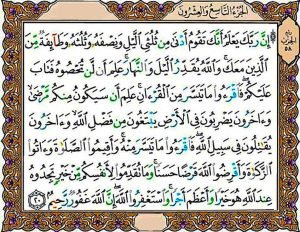 الجزء التاسع والعشرون
إِنَّ رَبَّكَ يَعْلَمُ أَنَّكَ تَقُومُ أَدْنَىٰ مِن ثُلُثَيِ الَّيْلِ وَنِصْفَهُ وَثُلُثَهُ وَطَآئِفَةٌ مِّنَ
الَّذِينَ مَعَكَ وَاللَّهُ يُقَدِّرُ الَّيْلَ وَالنَّهَارَ عَلِمَ أَن لَّن تُحْصُوهُ فَتَابَ
عَلَيْكُمْ فَاقْرَءُوا مَا تَيَسَّرَ مِنَ الْقُرْءَانِ عَلِمَ أَن سَيَكُونُ مِنكُم مَّرْضَىٰ
وَءَاخَرُونَ يَضْرِبُونَ فِي الْأَرْضِ يَبْتَغُونَ مِن فَضْلِ اللَّهِ وَءَاخَرُونَ
يُقَاتِلُونَ فِي سَبِيلِ اللَّهِ فَاقْرَءُوا مَا تَيَسَّرَ مِنْهُ وَأَقِيمُوا الصَّلَاةَ وَءَاتُوا
الزَّكَاةَ وَأَقْرِضُوا اللَّهَ قَرْضًا حَسَنًا وَمَا تُقَدِّمُوا لِأَنفُسِكُم مِّنْ خَيْرٍ تَجِدُوهُ
عِندَ اللَّهِ هُوَ خَيْرًا وَأَعْظَمَ أَجْرًا وَاسْتَغْفِرُوا اللَّهَ إِنَّ اللَّهَ غَفُورٌ رَّحِيمٌ ٢٠